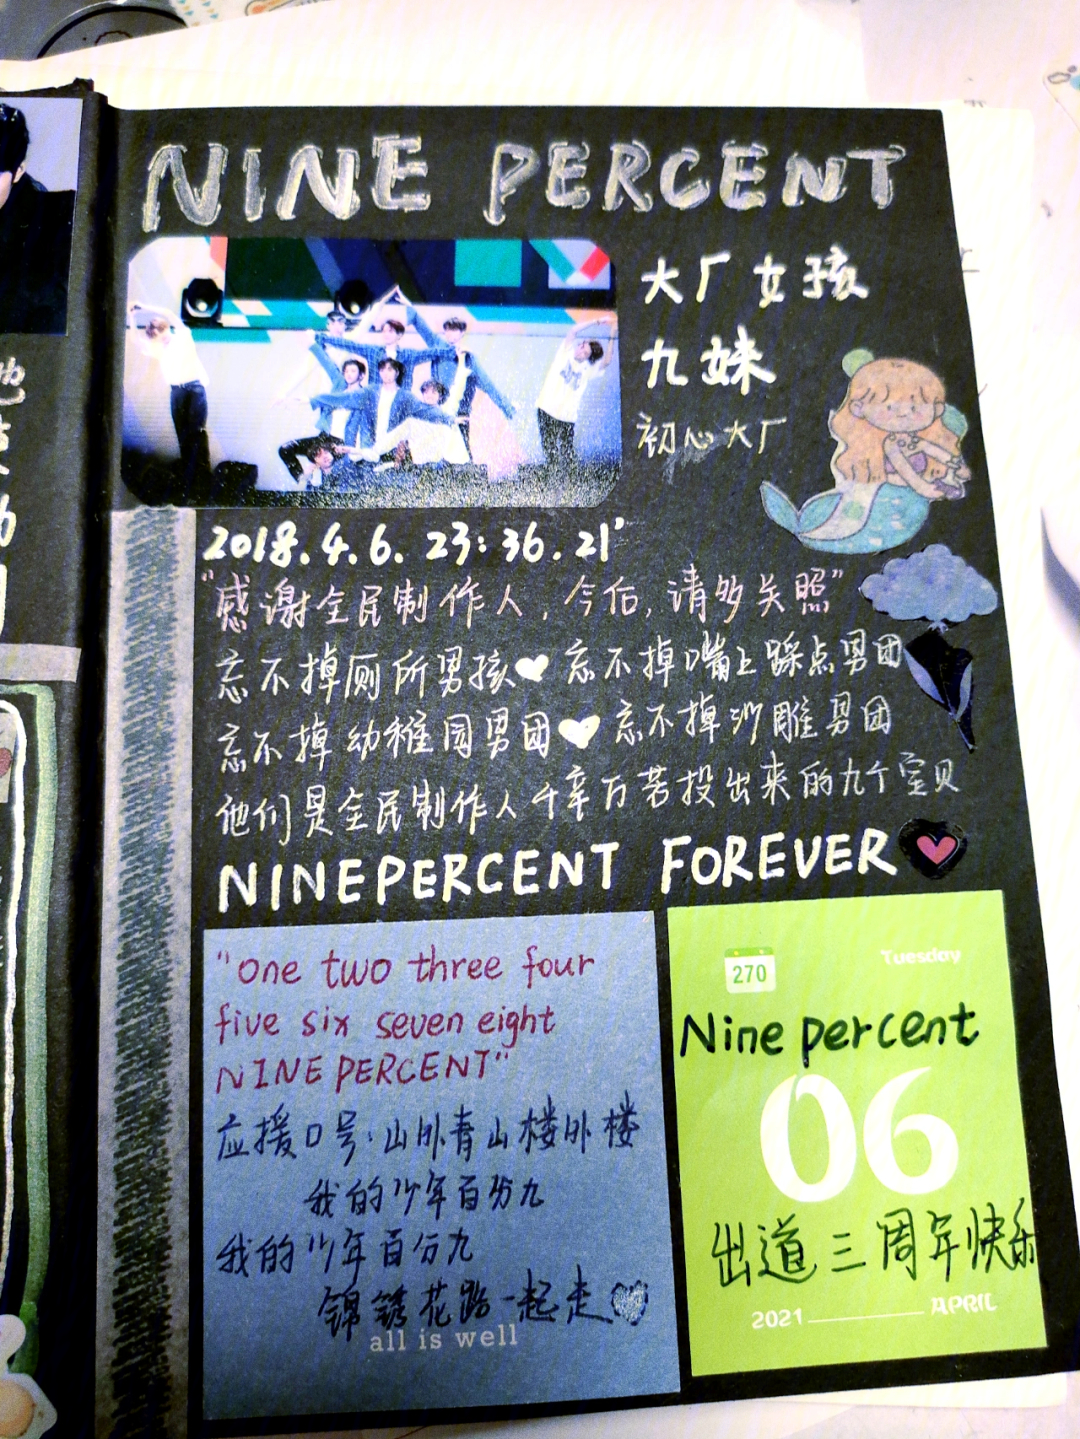 NINE PERCENT
大厂女孩
九妹
初心大厂
2018.4.6. 23:36.21'
"感谢全民制作人，今后，请多关照"
忘不掉厕所男孩♥忘不掉嘴上踩点男团
忘不掉幼稚园男团♥忘不掉沙雕男团
他们是全民制作人千辛万苦投出来的九个宝贝
NINEPERCENT FOREVER
"one two three four
five six seven eight
NINE PERCENT"
应援口号:山外青山楼外楼
我的少年百分九
我的少年百分九
锦锈花路一起走♡
all is well
270
Tuesday
Nine percent
06
出道三周年快乐
2021 APRIL